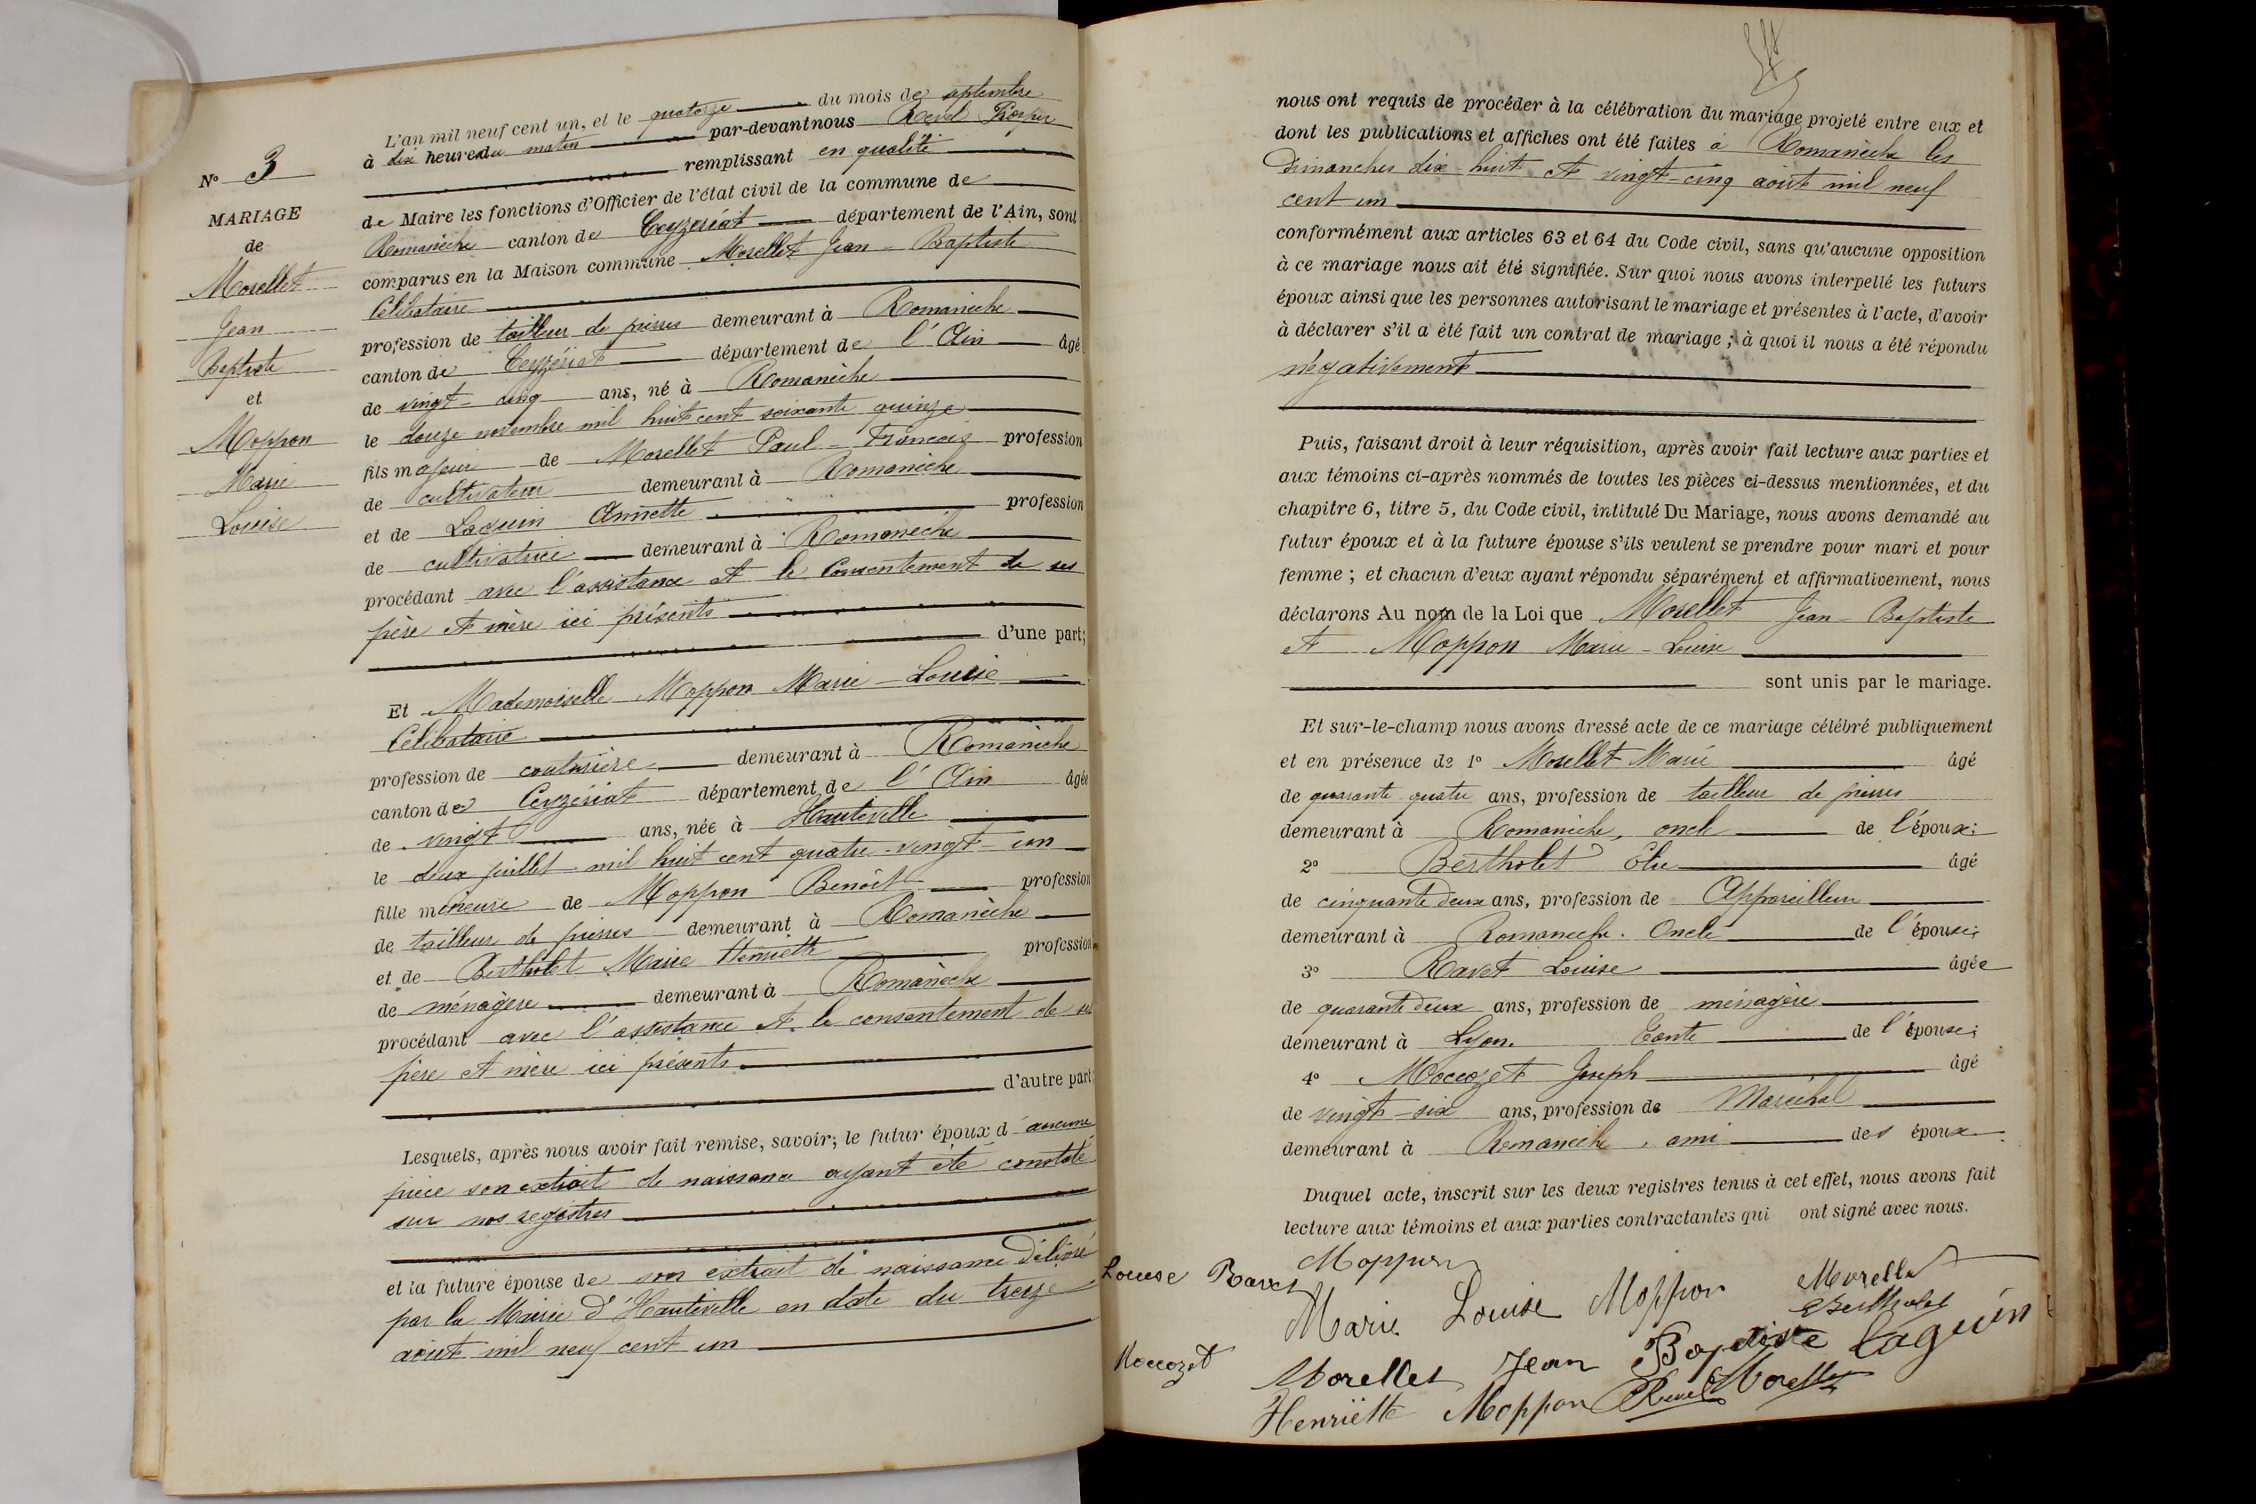 N° 3
MARIAGE
de
Morellet
Jean
Baptiste
et
Moppon
Marie
Louise
L'an mil neuf cent un, et le quatorze du mois de septembre
à dix heures du matin par-devant nous Revel Prosper
remplissant en qualité
de Maire les fonctions d'Officier de l'état civil de la commune de
Romanèche canton de Ceyzériat département de l'Ain, sont
comparus en la Maison commune Morellet Jean-Baptiste
Célibataire
profession de tailleur de pierres demeurant à Romanèche
canton de Ceyzériat département de l'Ain âgé
de vingt-cinq ans, né à Romanèche
le douze novembre mil huit cent soixante quinze
fils majeur de Morellet Paul-François profession
de cultivateur demeurant à Romanèche
et de Laguin Annette profession
de cultivatrice demeurant à Romanèche
procédant avec l'assistance et le Consentement de ses
père et mère ici présents
d'une part;
Et Mademoiselle Moppon Marie-Louise
Célibataire
profession de couturière demeurant à Romanèche
canton de Ceyzériat département de l'Ain âgée
de vingt ans, née à Hauteville
le deux juillet mil huit cent quatre-vingt-un
fille mineure de Moppon Benoît profession
de tailleur de pierres demeurant à Romanèche
et de Bertholet Marie Henriette profession
de ménagère demeurant à Romanèche
procédant avec l'assistance et le consentement de ses
père et mère ici présents
d'autre part;
Lesquels, après nous avoir fait remise, savoir; le futur époux d'aucune
pièce son extrait de naissance ayant été constaté
sur nos registres
et la future épouse de son extrait de naissance délivré
par la Mairie d'Hauteville en date du treize
août mil neuf cent un
nous ont requis de procéder à la célébration du mariage projeté entre eux et
dont les publications et affiches ont été faites à Romanèche les
Dimanches dix-huit et vingt-cinq août mil neuf
cent un
conformément aux articles 63 et 64 du Code civil, sans qu'aucune opposition
à ce mariage nous ait été signifiée. Sur quoi nous avons interpellé les futurs
époux ainsi que les personnes autorisant le mariage et présentes à l'acte, d'avoir
à déclarer s'il a été fait un contrat de mariage; à quoi il nous a été répondu
négativement
Puis, faisant droit à leur réquisition, après avoir fait lecture aux parties et
aux témoins ci-après nommés de toutes les pièces ci-dessus mentionnées, et du
chapitre 6, titre 5, du Code civil, intitulé Du Mariage, nous avons demandé au
futur époux et à la future épouse s'ils veulent se prendre pour mari et pour
femme; et chacun d'eux ayant répondu séparément et affirmativement, nous
déclarons Au nom de la Loi que Morellet Jean-Baptiste
et Moppon Marie-Louise
sont unis par le mariage.
Et sur-le-champ nous avons dressé acte de ce mariage célébré publiquement
et en présence de 1° Morellet Marie âgé
de quarante quatre ans, profession de tailleur de pierres
demeurant à Romanèche, oncle de l'époux;
2° Bertholet Elie âgé
de cinquante deux ans, profession de Appareilleur
demeurant à Romanèche. Oncle de l'épouse;
3° Ravet Louise âgée
de quarante deux ans, profession de ménagère
demeurant à Lyon. Tante de l'épouse;
4° Moccozet Joseph âgé
de vingt-six ans, profession de Maréchal
demeurant à Romanèche, ami des époux
Duquel acte, inscrit sur les deux registres tenus à cet effet, nous avons fait
lecture aux témoins et aux parties contractantes qui ont signé avec nous.
Moppon
Louise Ravet
Marie Louise Moppon Morellet
Bertholet
Moccozet Morellet Jean Baptiste Laguin
Henriette Moppon Revel Morellet